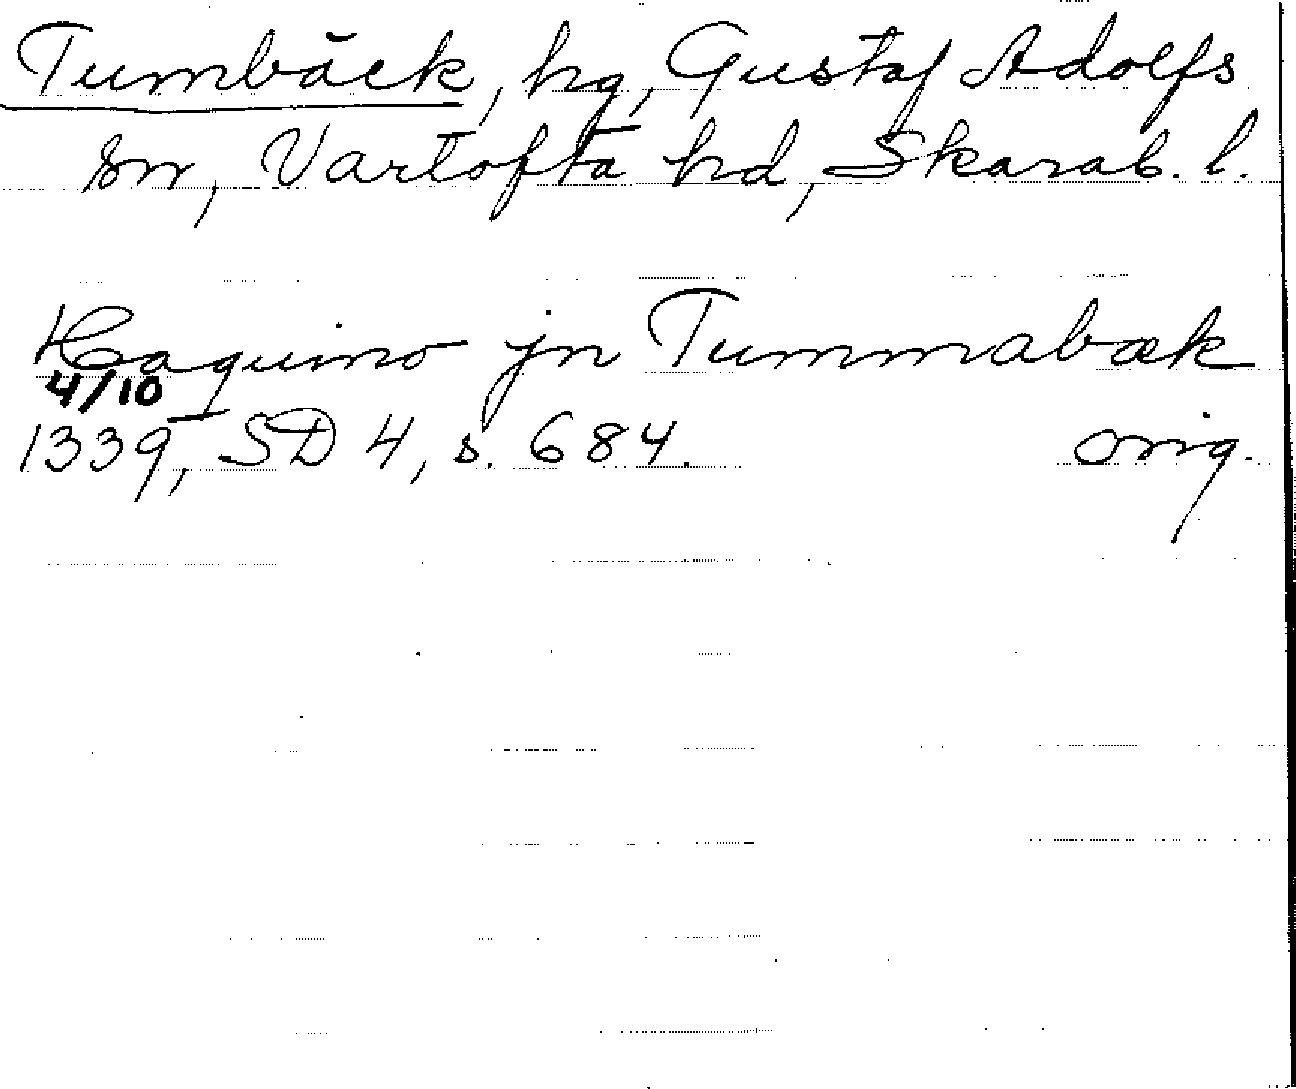 Tumbäck, hg, Gustaf Adolfs
sn, Vartofta hd, Skarab. l.
Haquino jn Tummabæk
4/10
1339, SD 4, s. 684. orig.